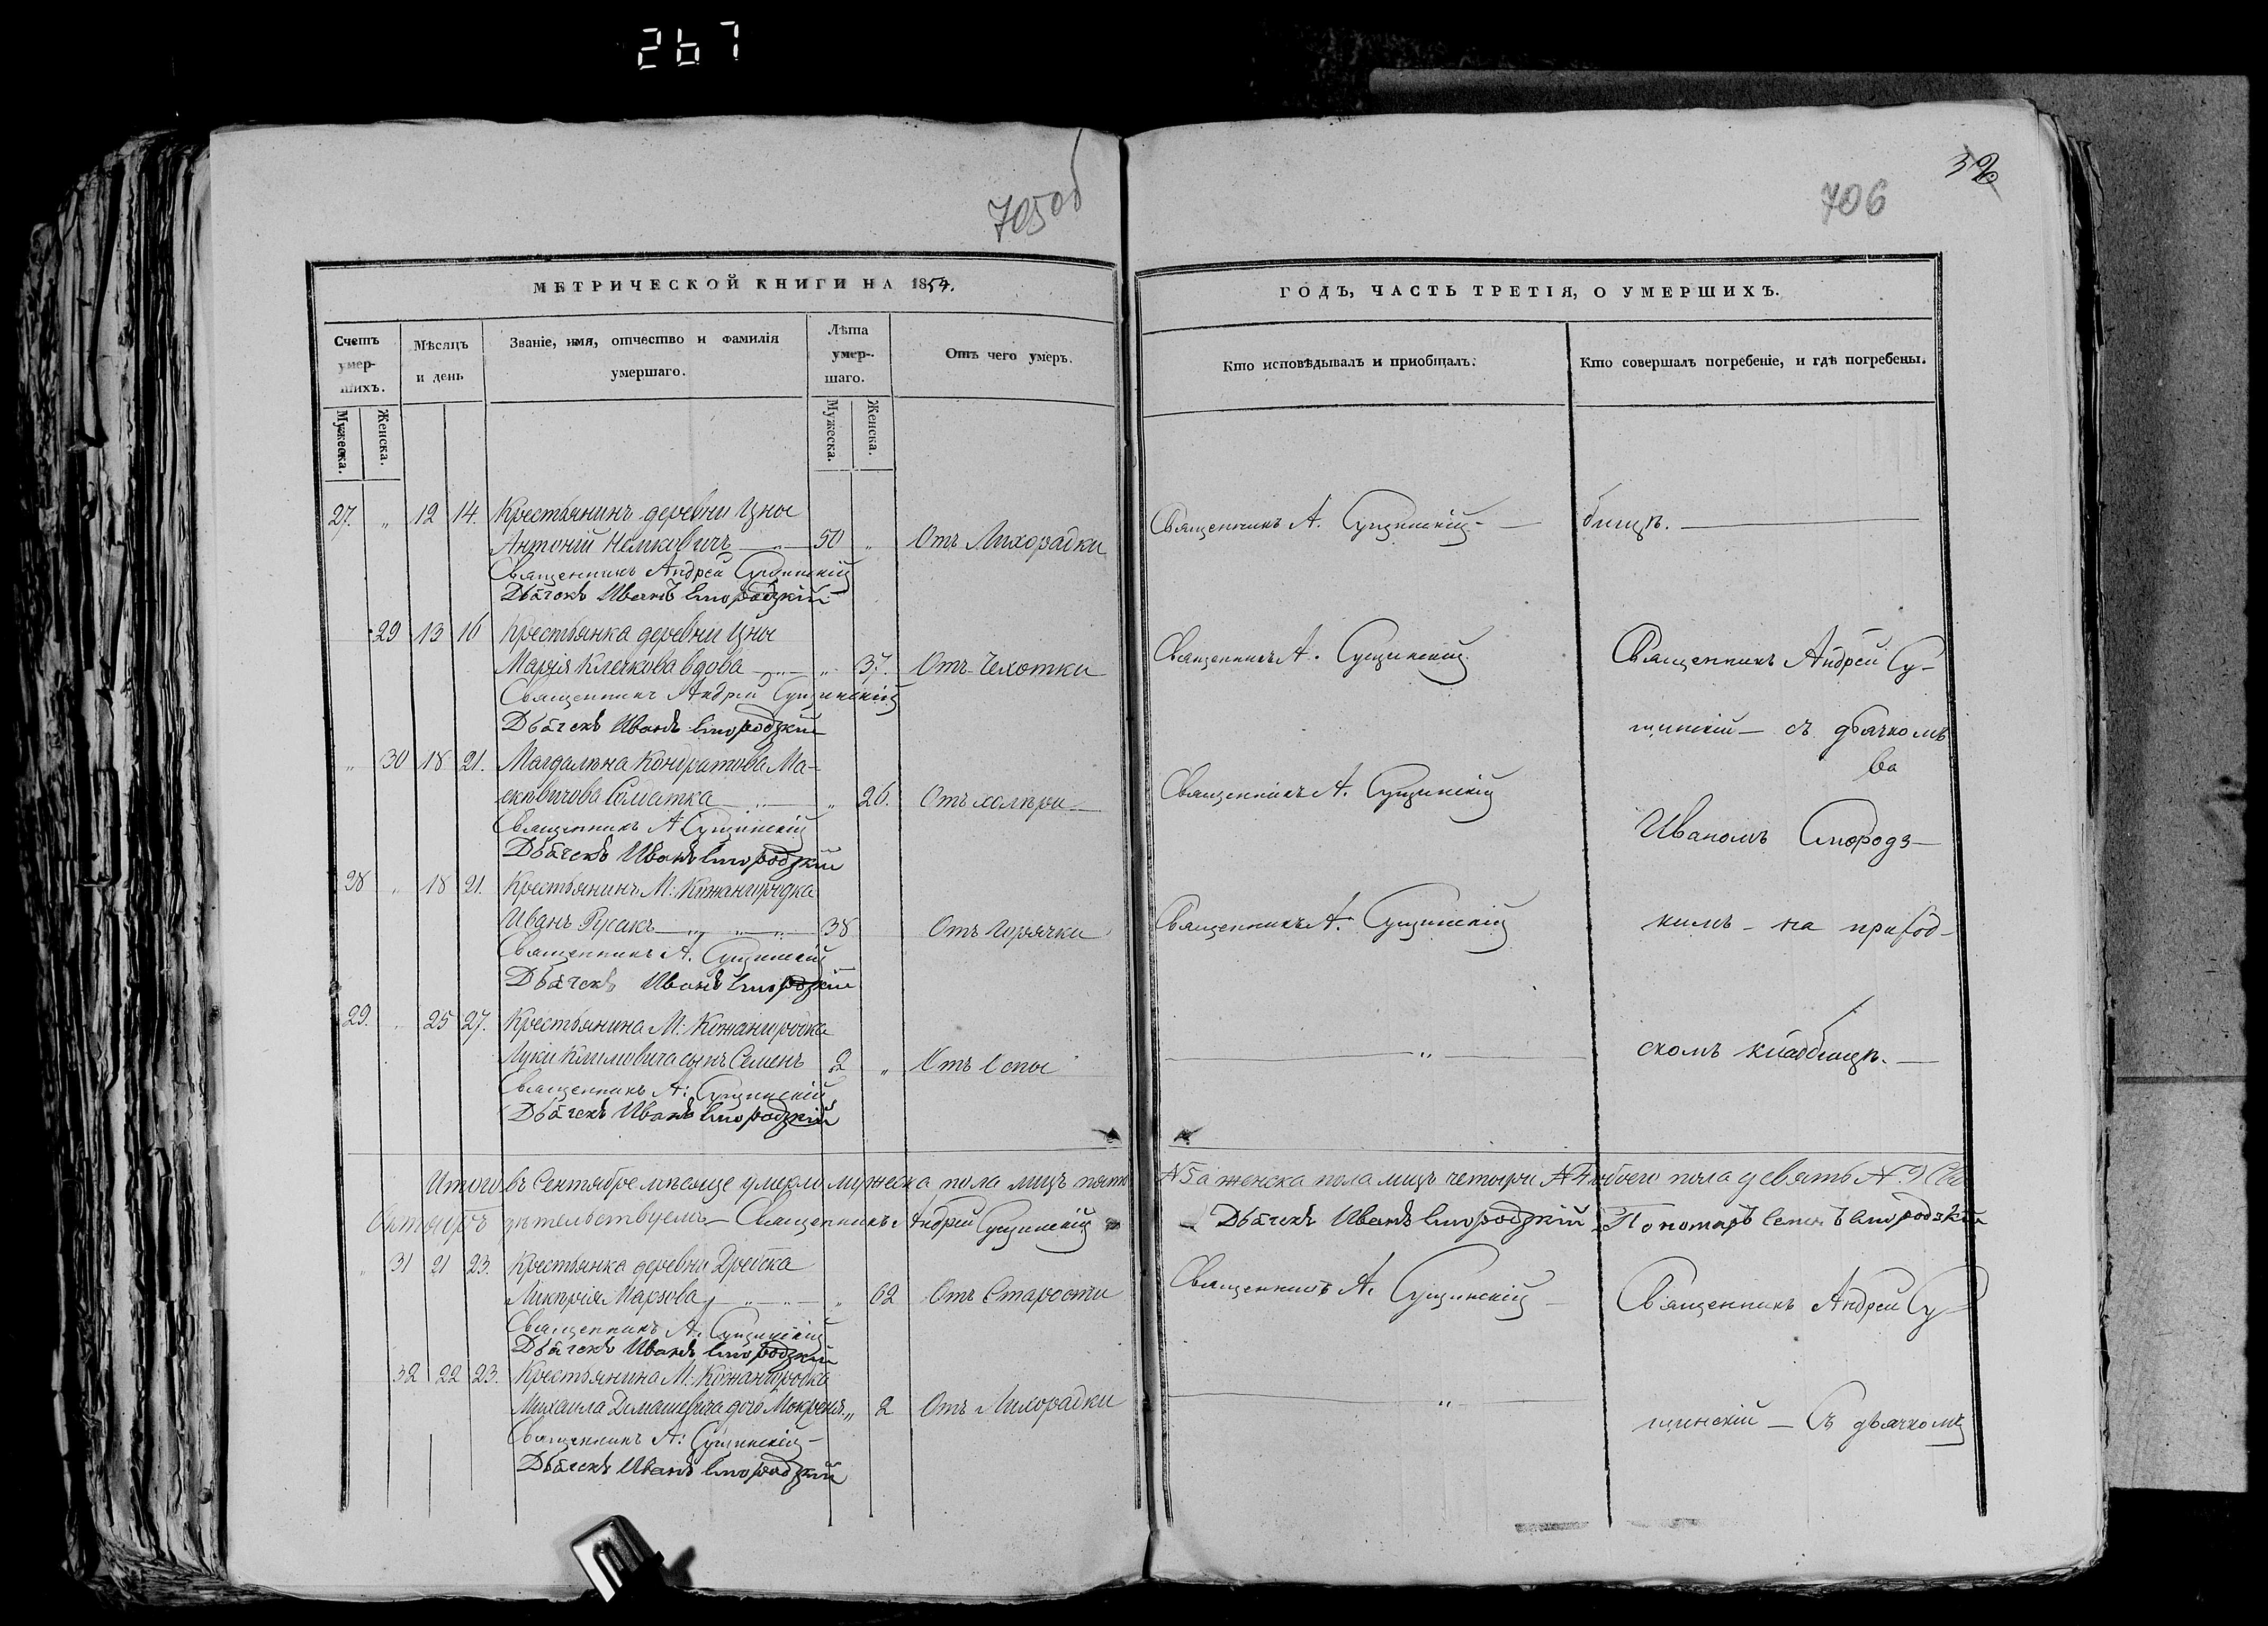 267
705об
706
32
МЕТРИЧЕСКОЙ КНИГИ НА 1854.
Счетъ умершихъ.
Мужеска.
Женска.
Мѣсяцъ и день
Званіе, имя, отчество и фамилія умершаго.
Лѣта умершаго.
Мужеска.
Женска.
Отъ чего умеръ.
27. „ 12 14. Крестьянинъ деревни Цны
Антоній Немковичъ — „ — 50 „ Отъ Лихорадки
Священникъ Андрей Сущинскій
Дьячекъ Иванъ Смородзкій
29 13 16 Крестьянка деревни Цны
Марія Клечкова вдова — „ — „ 37. Отъ Чехотки
Священникъ Андрей Сущинскій
Дьячекъ Иванъ Смородзкій
„ 30 18 21. Магдалѣна Кондратова Ма-
Солдатка — „ — „ 26. Отъ холѣры —
Священникъ А Сущинскій
Дьячекъ Иванъ Смородзкій
28 „ 18 21. Крестьянинъ М: Кожангродка
Иванъ Русакъ — „ — „ — „ — 38 Отъ Горячки
Священникъ А. Сущинскій
Дьячекъ Иванъ Смородзкій
29. „ 25 27. Крестьянина М: Кожангродка
Луки Климовича сынъ Семенъ 2 „ Отъ Оспы
Священникъ А: Сущинскій
Дьячекъ Иванъ Смородзкій
Итого въ Сентябре мѣсяце умерло мужеска пола лицъ пять
Октябрь дѣтельствуемъ — Священникъ Андрей Сущинскій
„ 31 21 23. Крестьянка деревни
Марзова — „ — „ — „ 62 Отъ Старости
Священникъ А. Сущинскій
Дьячекъ Иванъ Смородзкій
32 22 23. Крестьянина М: Кожангродка
Михаила „ 2 Отъ Лихорадки
Священникъ А: Сущинскій —
Дьячекъ Иванъ Смородзкій
ГОДЪ, ЧАСТЬ ТРЕТІЯ, О УМЕРШИХЪ.
Кто исповѣдывалъ и пріобщалъ.
Кто совершалъ погребеніе, и гдѣ погребены.
Священникъ А. Сущинскій — бищѣ. —
Священникъ А. Сущинскій
Священникъ Андрей Су-
щинскій — съ дьячкомъ
ва
Священникъ А. Сущинскій
Иваномъ Смородз-
Священникъ А. Сущинскій
кимъ — на приход-
— „ —
скомъ кладбищѣ. —
№ 5 а женска пола лицъ четыри № 4 обоего пола девять № 9 Сви
— Дьячекъ Иванъ Смородзкій Пономарь Семенъ Смородзкій
Священникъ А. Сущинскій —
Священникъ Андрей Су-
— „ —
щинскій — Съ дьячкомъ